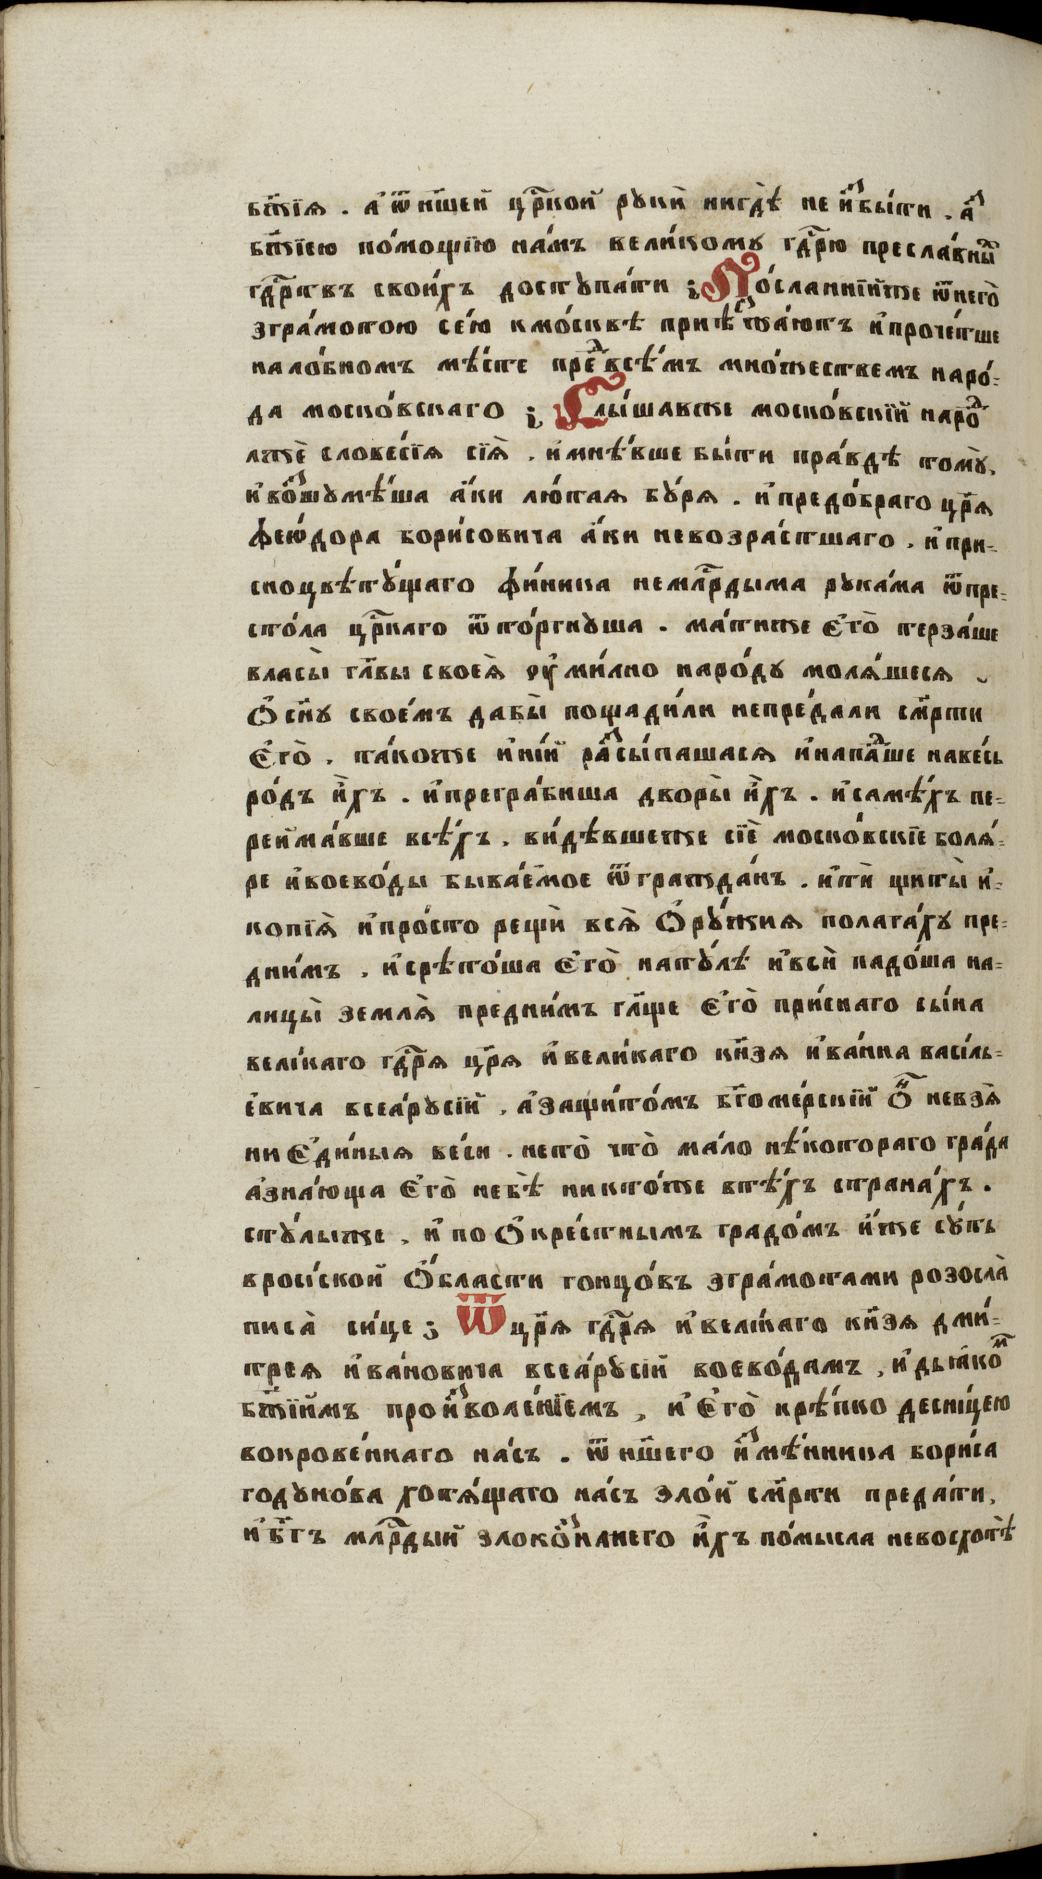 бж҃їѧ . а҆ ѿ на́шей црⷭ҇кой руки̇̀ нигдѣ̀ не и҆ⷥбы́ти . а҆ⷥ
бж҃їею по́мощїю на́мъ вели́кому гдⷭ҇рю пресла́вныⷯ
гдⷭ҇рствъ свои́хъ доступа́ти ; По́сланнїи́же ѿ него̀
зъгра́мотою се́ю к мо́сквѣ прїѣⷥжа́ютъ и҆ проче́тше
на ло́бномъ мѣ́сте преⷣ всѣ́мъ мно́жествемъ наро́-
да моско́вскаго ; Слы́шавже моско́вскїй нароⷣ
лжѐ словесїѧ сїѧ̀ . и҆ мнѣ́вше бы́ти пра́вдѣ тому̀,
и҆ воⷥшумѣ́ша а҆́ки лю́таѧ бу́рѧ . и҆ предо́браго цр҃ѧ
фео́дора бори́совича а҆́ки невозра́стшаго . и҆ при-
сноцвѣту́щаго фи́ника немлⷭ҇рдыма рука́ма ѿ пре-
сто́ла црⷭ҇каго ѿто́ргнуша . ма́тиже є҆го̀ терза́ше
власы̀ гл҃вы своеѧ̀ ѹ҆ми́лно наро́ду молѧ́шесѧ
ѻ҆ сн҃у свое́мъ дабы̀ пощади́ли непре́дали сме́рти
є҆го̀ . та́коже и҆нїи̇ раⷥсы́пашасѧ и҆ напаⷣше на ве́сь
ро́дъ и҆̀хъ . и҆ прегра́биша дворы̀ и҆̀хъ . и҆ самѣ́хъ пе-
рейма́вше всѣ́хъ . ви́дѣвшеже сїѐ моско́вскїе болѧ́-
ре и҆ воево́ды быва́емое ѿ гражда́нъ . и҆ тїи̇ щиты̀ и҆-
копїѧ̀ и҆ про́сто рещи̇̀ всѧ̀ ѻ҆ру́жиѧ полага́ху пре-
дни́мъ . и҆ срѣто́ша є҆го̀ на ту́лѣ и҆ вси̇ падо́ша на-
лицы̀ землѧ̀ предни́мъ гл҃ще є҆го̀ при́снаго сы́на
вели́каго гдⷭ҇рѧ цр҃ѧ и҆ вели́каго кн҃зѧ и҆ва́нна васи́ль-
е҆вича всеа́русїй . а҆ защито́мъ бг҃оме́рскїй ѻ҆́нⷩ невзѧ̀
ни є҆ди́ныѧ ве́си . нето̀ что̀ ма́ло нѣ́котораго гра́да
а҆ зна́юща є҆го̀ не бѣ̀ никто́же в тѣ́хъ страна́хъ .
с ту́лыже . и҆ по ѻ҆кре́стнымъ градо́мъ и҆́же су́ть
в росси́ской ѻ҆́бласти гонцо́въ зъгра́мотами розосла̀
писа̀ си́це ; Ѿ цр҃ѧ гдⷭ҇рѧ и҆ вели́каго кн҃зѧ дми́-
треѧ и҆ва́новича всеа́русїй воево́дамъ . и҆ дья́комⷨ
бж҃їимъ прои҆ⷥволе́нїемъ , и҆ є҆го̀ крѣ́пко десни́цею
покрове́ннаго на́съ . ѿ на́шего и҆ⷥмѣ́нника бори́са
годуно́ва хотѧ́щаго на́съ зло́й сме́рти преда́ти,
и҆ бг҃ъ млⷭ҇рдый злокоⷥна́него и҆̀хъ по́мысла невосхотѣ̀